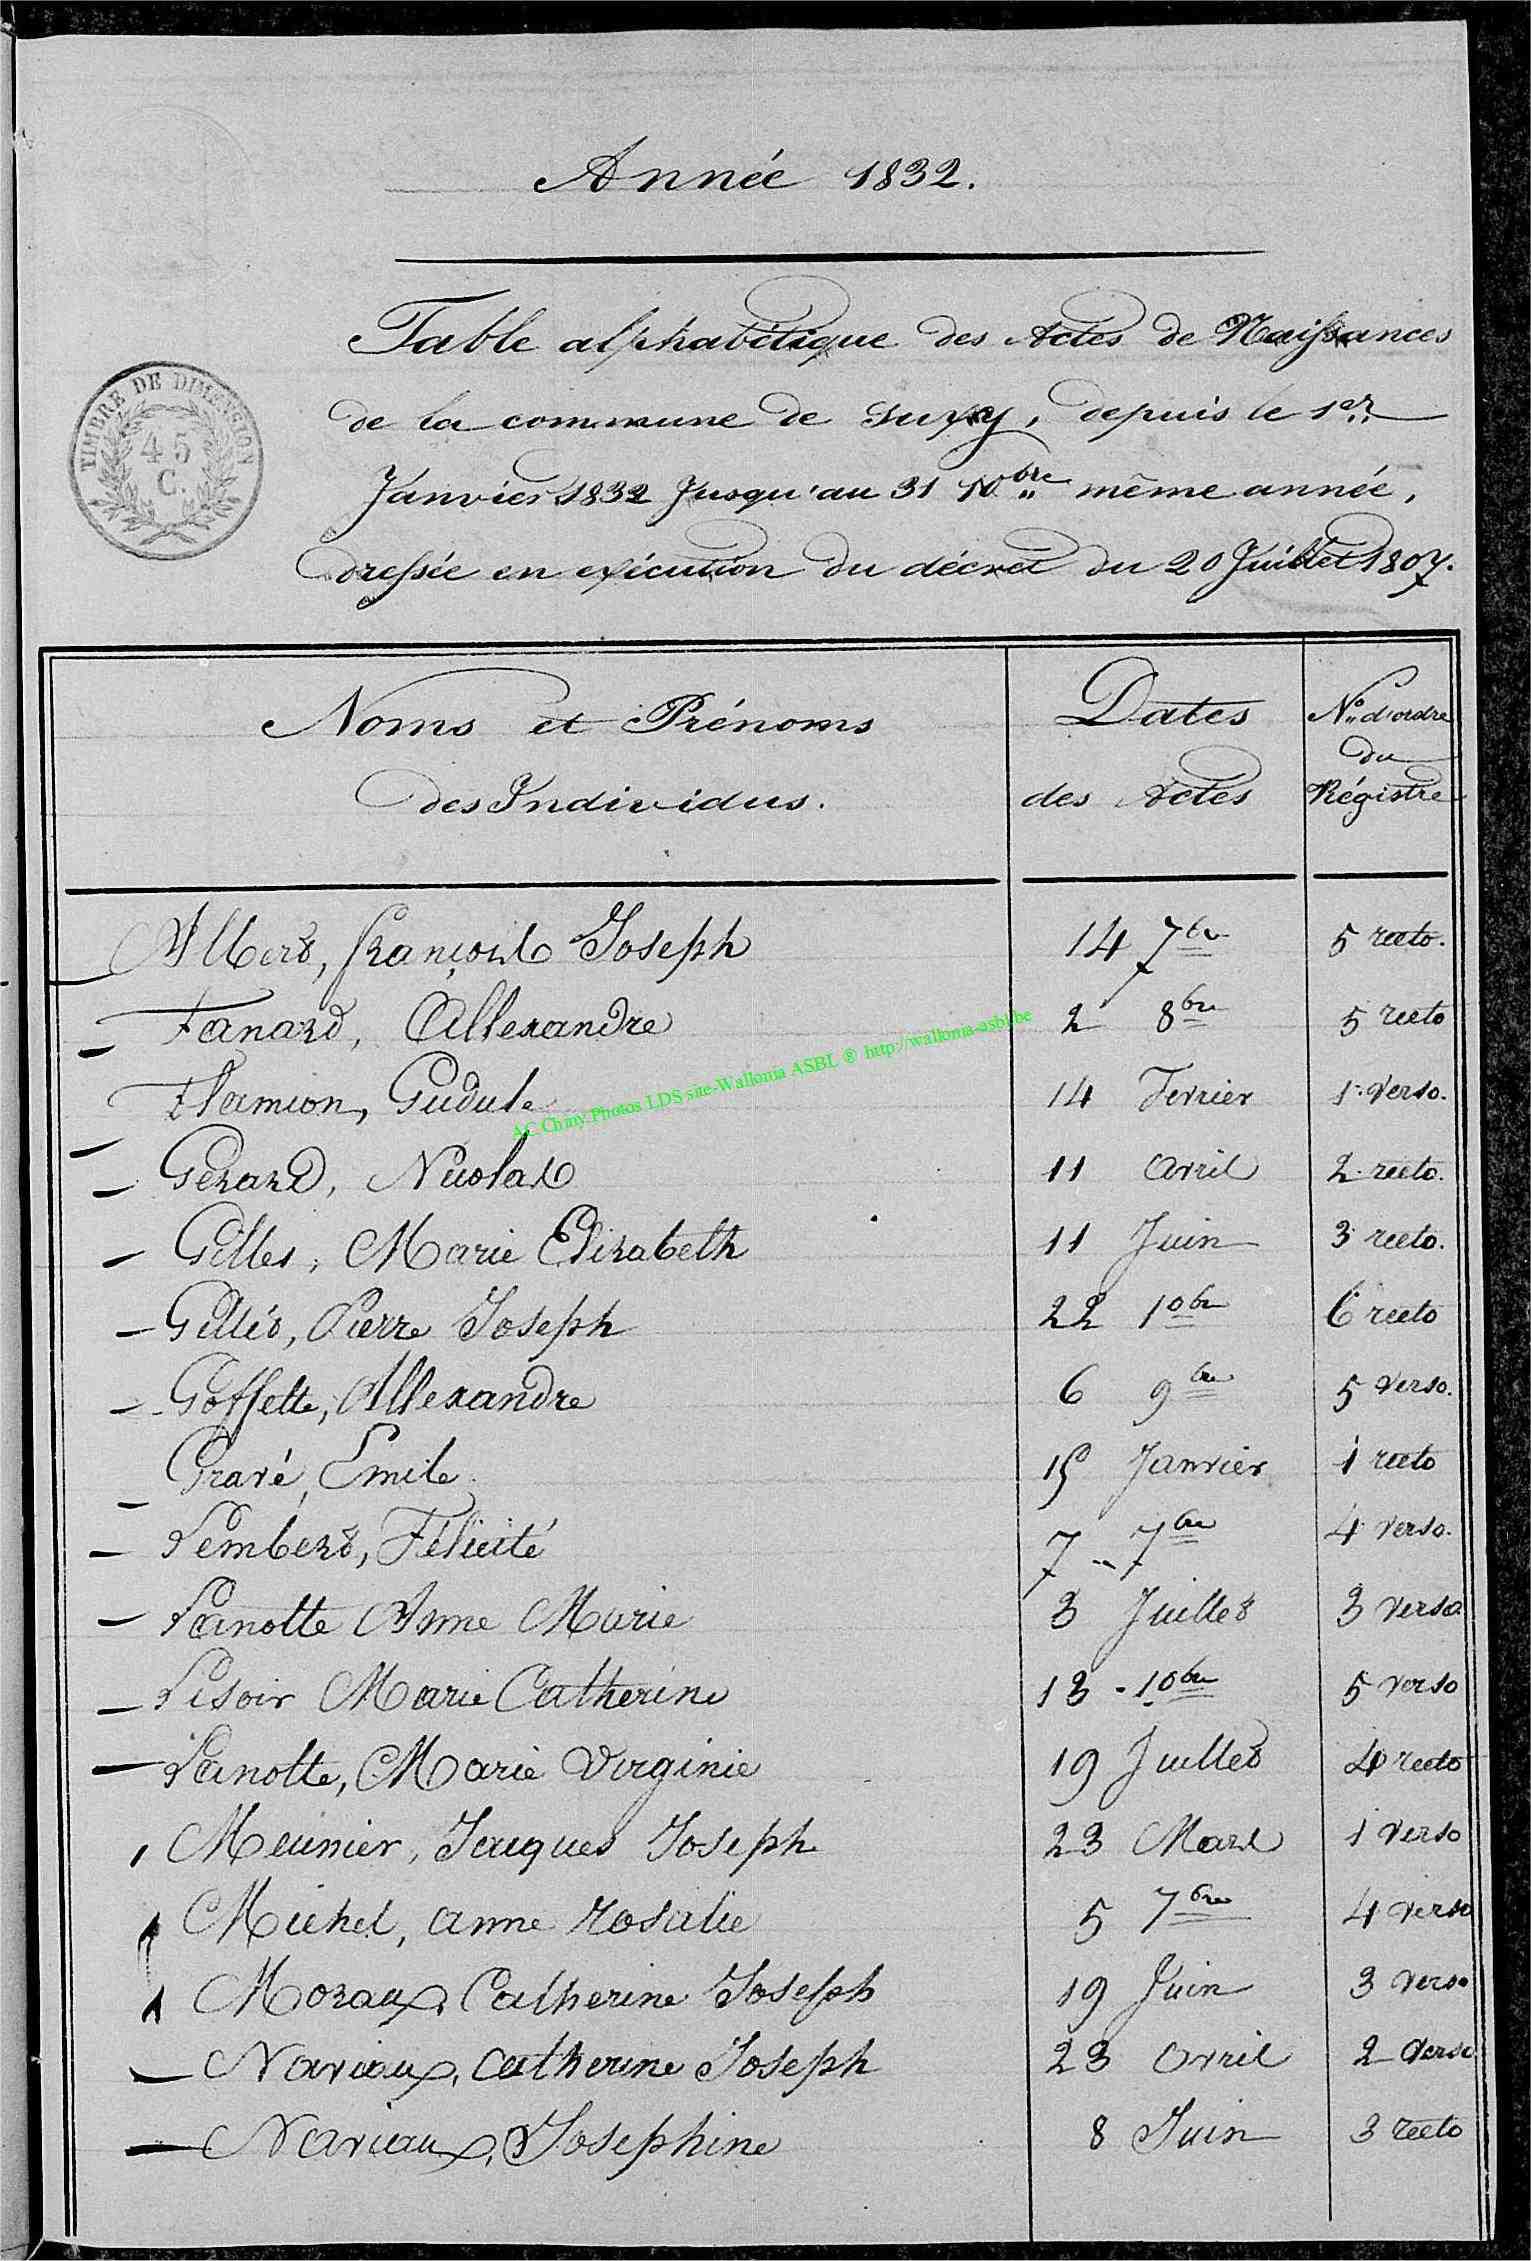 Année 1832.
Table alphabétique des Actes de Naissances
de la commune de Suxy, depuis le 1er
Janvier 1832 Jusqu'au 31 Xbre même année,
dressée en exécution du décret du 20 Juillet 1807.
TIMBRE DE DIMENSION
45
C.
Noms et Prénoms des Individus. Dates des Actes No d'ordre du Régistre
Albert, françois Joseph 14 7bre 5 recto.
Fanard, Allexandre 2 8bre 5 recto
AC Chiny Photos LDS site-Wallonia ASBL ® http://wallonia-asbl.be
flamion, Gudule 14 Fevrier 1. verso.
Gerard, Nicolas 11 avril 2. recto.
Gilles, Marie Elizabeth 11 Juin 3 recto.
Gilles, Pierre Joseph 22 10bre 6 recto
Goffette, Allexandre 6 9bre 5 verso.
Gravé, Emile 15 Janvier 1 recto
Lembert, Félicité 7 7bre 4 verso.
Lanotte Anne Marie 3 Juillet 3 verso
Lisoir Marie Catherine 13 - 10bre 5 verso
Lanotte, Marie Virginie 19 Juillet 4 recto
Meunier, Jacques Joseph 23 Mars 1 verso
Michel, anne rosalie 5 7bre 4 verso
Moraux, Catherine Joseph 19 Juin 3 verso
Naviaux, Catherine Joseph 23 avril 2 verso
Naviaux, Josephine 8 Juin 3 recto